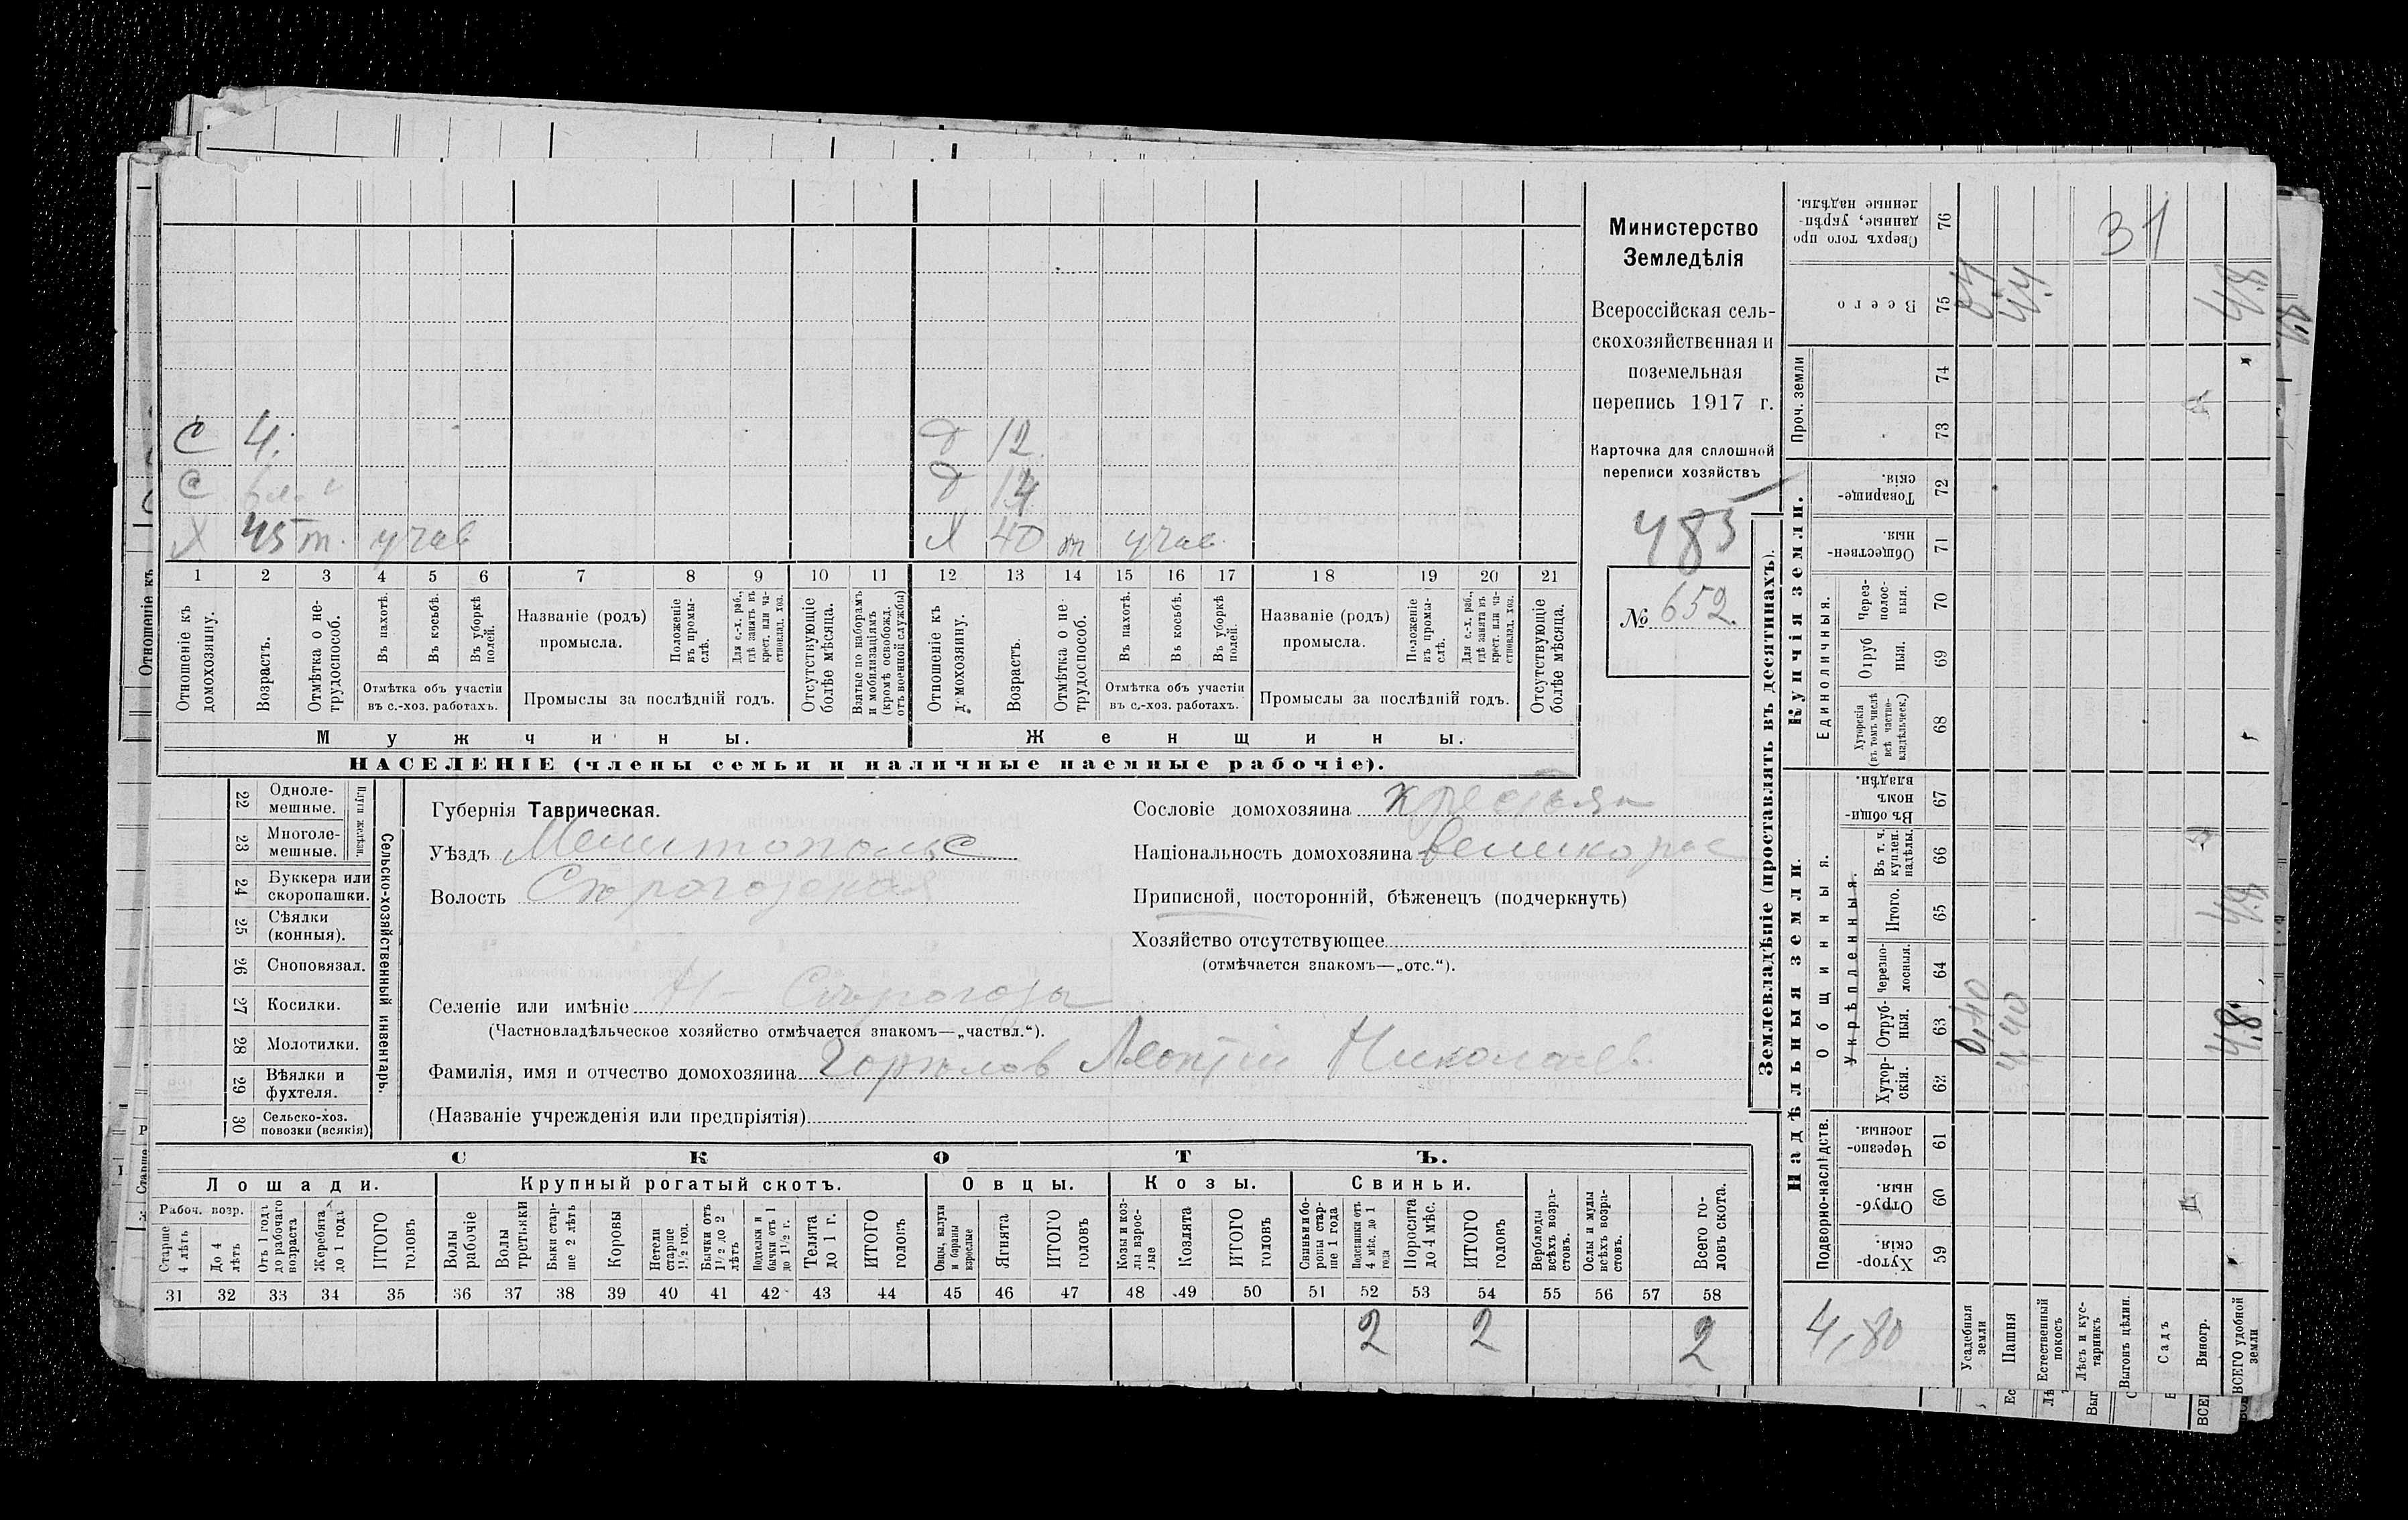 С 4. Д 12.
С Д 14
Х 45 т. учав Х 40 т учав.
1 2 3 4 5 6 7 8 9 10 11 12 13 14 15 16 17 18 19 20 21
Отношеніе къ домохозяину.
Возрастъ.
Отмѣтка о не-трудоспособ.
Въ пахотѣ.
Въ косьбѣ.
Въ уборкѣ полей.
Отмѣтка объ участіи въ с.-хоз. работахъ.
Названіе (родъ) промысла.
Положеніе въ промы-слѣ.
Для с.-х. раб., гдѣ занятъ въ крест. или ча-стновлад. хоз.
Промыслы за послѣдній годъ.
Отсутствующіе болѣе мѣсяца.
Взятые по наборамъ и мобилизаціямъ (кромѣ освобожд. отъ военной службы)
Отношеніе къ домохозяину.
Возрастъ.
Отмѣтка о не-трудоспособ.
Въ пахотѣ.
Въ косьбѣ.
Въ уборкѣ полей.
Отмѣтка объ участіи въ с.-хоз. работахъ.
Названіе (родъ) промысла.
Положеніе въ промы-слѣ.
Для с.-х. раб., гдѣ занята въ крест. или ча-стновлад. хоз.
Промыслы за послѣдній годъ.
Отсутствующіе болѣе мѣсяца.
Мужчины. Женщины.
НАСЕЛЕНІЕ (члены семьи и наличные наемные рабочіе).
Министерство
Земледѣлія
Всероссійская сель-
скохозяйственная и
поземельная
перепись 1917 г.
Карточка для сплошной
переписи хозяйствъ
485
№ 652.
22 Одноле-мешные.
23 Многоле-мешные.
Плуги желѣзн.
24 Буккера или скоропашки.
25 Сѣялки (конныя).
26 Сноповязал.
27 Косилки.
28 Молотилки.
29 Вѣялки и фухтеля.
30 Сельско-хоз. повозки (всякія)
Сельско-хозяйственный инвентарь.
Губернія Таврическая.
Уѣздъ Мелитопольс
Волость
Селеніе или имѣніе Н- Серогозы
(Частновладѣльческое хозяйство отмѣчается знакомъ—„частвл.“).
Фамилія, имя и отчество домохозяина Леонтій Николаев.
(Названіе учрежденія или предпріятія)
Сословіе домохозяина крестьян
Національность домохозяина великорос
Приписной, посторонній, бѣженецъ (подчеркнуть)
Хозяйство отсутствующее
(отмѣчается знакомъ—„отс.“).
СКОТЪ.
Лошади. Крупный рогатый скотъ. Овцы. Козы. Свиньи.
Рабоч. возр.
Старше 4 лѣтъ
До 4 лѣтъ
Отъ 1 года до рабочаго возраста
Жеребята до 1 года
ИТОГО головъ
Волы рабочіе
Волы третьяки
Быки стар-ше 2 лѣтъ
Коровы
Нетели старше 1½ год.
Бычки отъ 1½ до 2 лѣтъ
Подтелки и бычки отъ 1 до 1½ г.
Телята до 1 г.
ИТОГО головъ
Овцы, валухи и бараны взрослые
Ягнята
ИТОГО головъ
Козы и коз-лы взрос-лые
Козлята
ИТОГО головъ
Свиньи и бо-ровы стар-ше 1 года
Подсвинки отъ 4 мѣс. до 1 года
Поросята до 4 мѣс.
ИТОГО головъ
Верблюды всѣхъ возра-стовъ.
Ослы и мулы всѣхъ возра-стовъ.
Всего го-ловъ скота.
31 32 33 34 35 36 37 38 39 40 41 42 43 44 45 46 47 48 49 50 51 52 53 54 55 56 57 58
2 2 2
Землевладѣніе (проставлять въ десятинахъ).
Купчія земли.
Надѣльныя земли.
76 Сверхъ того про-данные, укрѣп-ленные надѣлы.
31
75 Всего
0,4
4,4
4,8
Проч. земли
74
73
72 Товарище-скія.
71 Обществен-ныя.
Единоличныя.
70 Через-полос-ныя.
69 Отруб-ныя.
68 Хуторскія (въ томъ числѣ всѣ частно-владѣльческ.)
67 Въ общи-номъ владѣн.
Общинныя.
Укрѣпленныя.
66 Въ т. ч. куплен. надѣлы.
65 Итого.
4,8
64 Черезпо-лосныя.
63 Отруб-ныя.
0,40
4,40
4,8
62 Хутор-скія.
Подворно-наслѣдств.
61 Черезпо-лосныя.
60 Отруб-ныя.
59 Хутор-скія.
4,80
Усадебныя земли
Пашня
Естественный покосъ
Лѣсъ и кус-тарникъ
Выгонъ цѣлин.
Садъ
Виногр.
ВСЕГО удобной земли